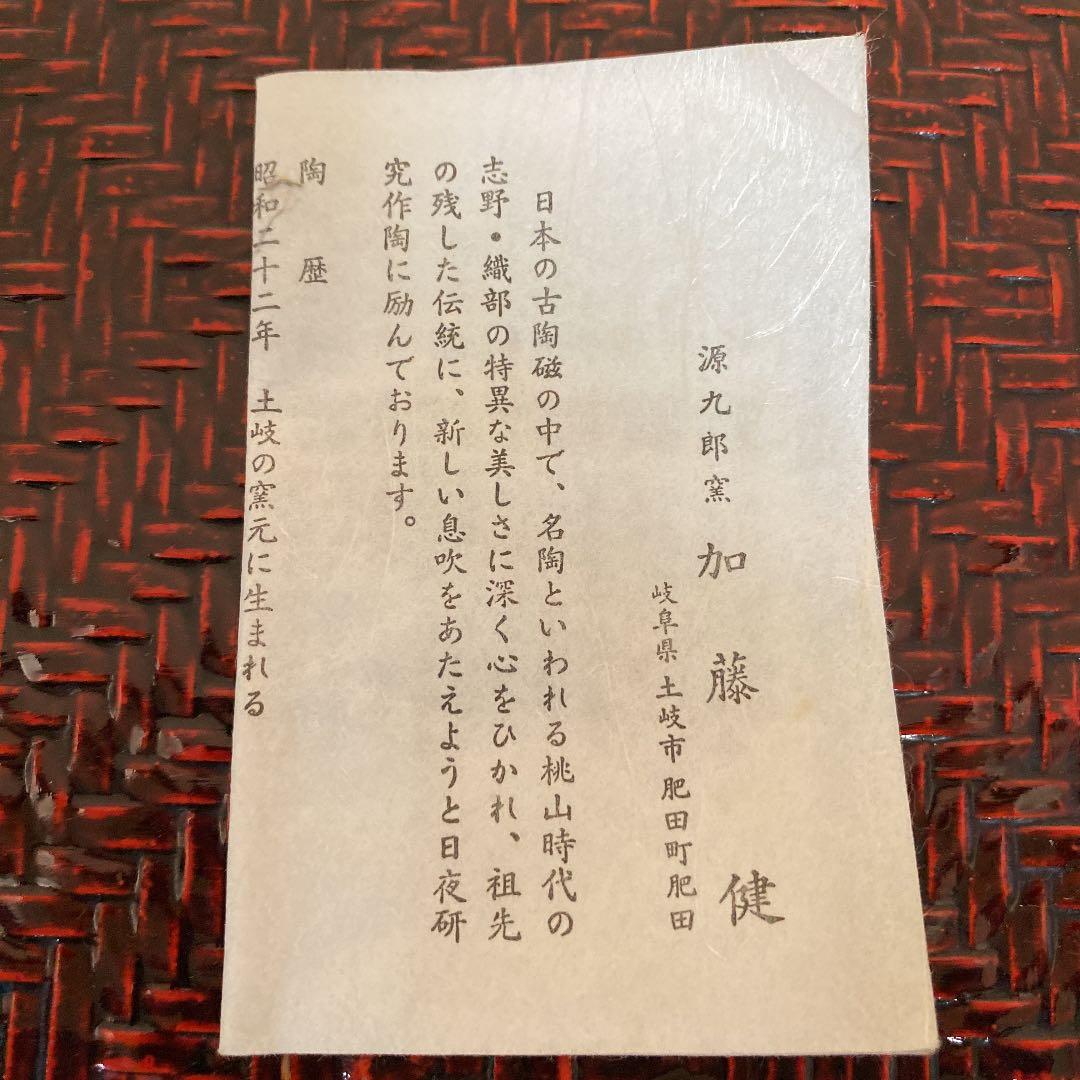 源九郎窯 加藤 健
岐阜県土岐市肥田町肥田
日本の古陶磁の中で、名陶といわれる桃山時代の
志野・織部の特異な美しさに深く心をひかれ、祖先
の残した伝統に、新しい息吹をあたえようと日夜研
究作陶に励んでおります。
陶 歴
昭和二十二年 土岐の窯元に生まれる